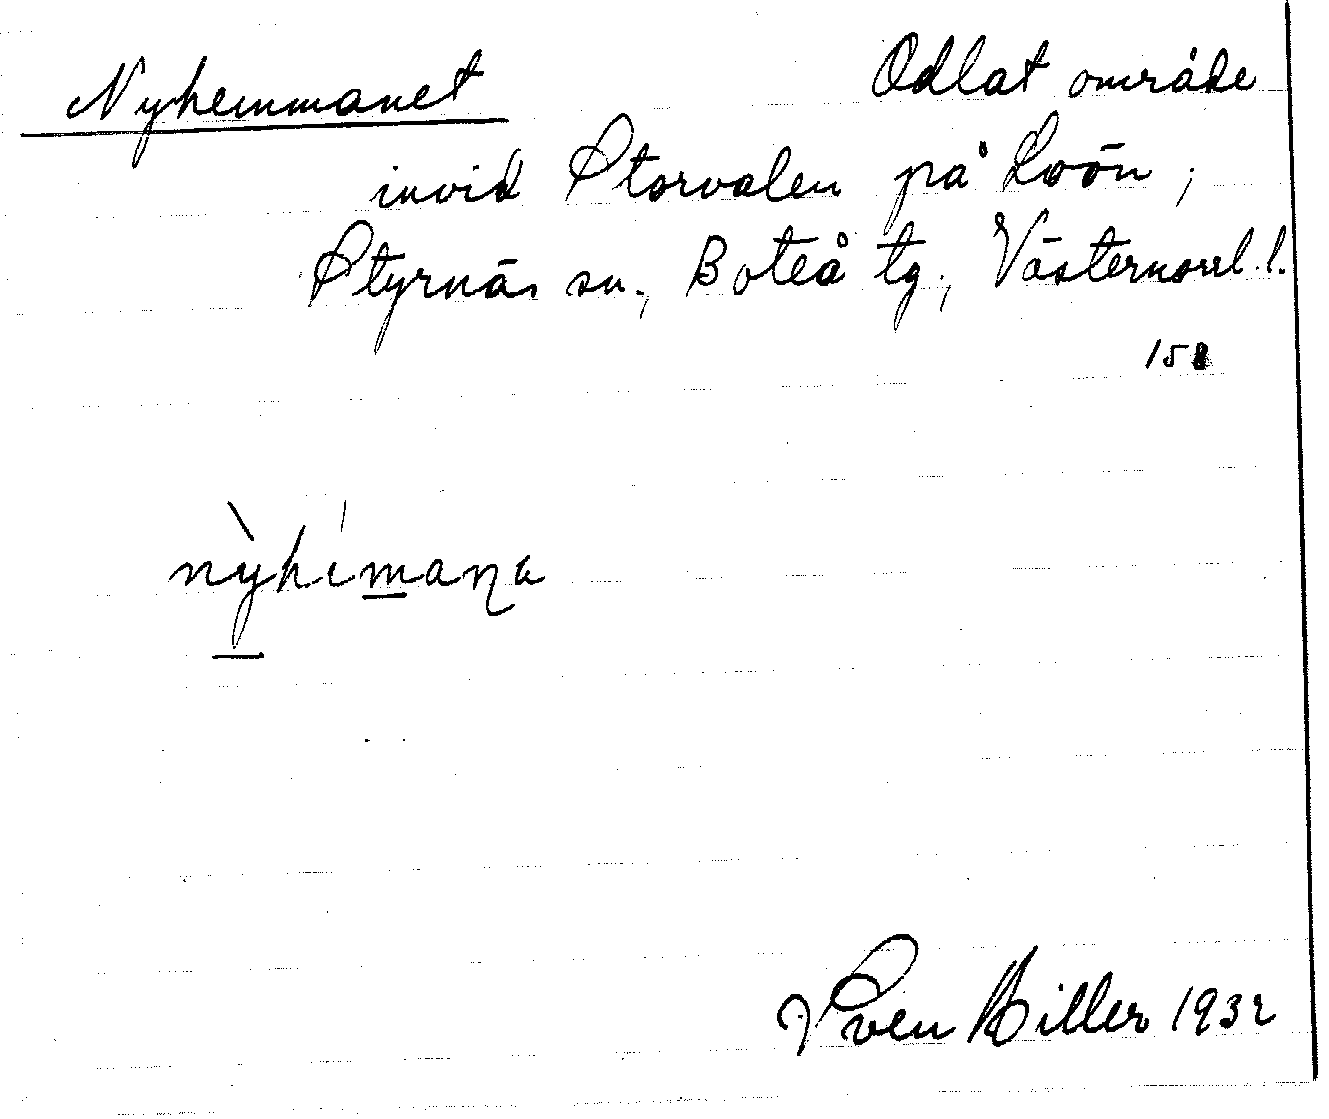 Nyhemmanet Odlat område
invid Storvalen på Loön,
Styrnäs sn., Boteå tg., Västernorrl. l.
158
nỳhímaṇa
Sven Hiller 1932